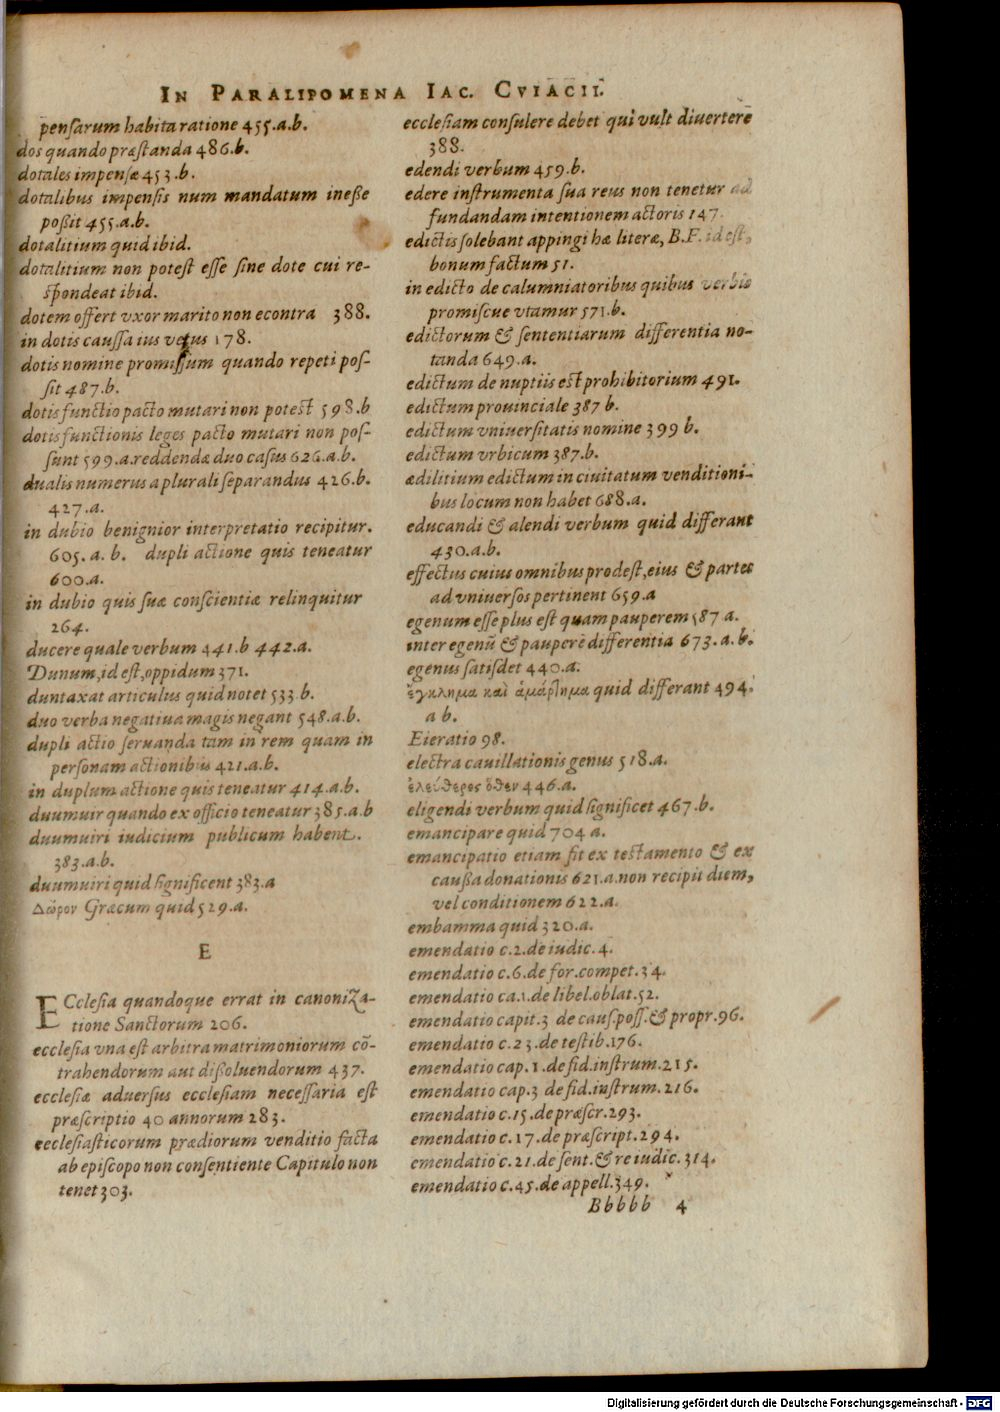 IN PARALIPOMENA IAC. CVIACII.
penſarum habita ratione 455.a.b.
dos quando præſtanda 486.b.
dotales impenſæ 453.b.
dotalibus impenſis num mandatum ineße
poßit 455.a.b.
dotalitium quid ibid.
dotalitium non poteſt eſſe ſine dote cui re-
ſpondeat ibid.
dotem offert vxor marito non econtra 388.
in dotis cauſſa ius vetus 178.
dotis nomine promiſſum quando repeti poſ-
ſit 487.b.
dotis functio pacto mutari non poteſt 598.b
dotis functionis leges pacto mutari non poſ-
ſunt 599.a.reddendæ duo caſus 626.a.b.
dualis numerus a plurali ſeparandus 426.b.
427.a.
in dubio benignior interpretatio recipitur.
605. a. b. dupli actione quis teneatur
600.a.
in dubio quis ſuæ conſcientiæ relinquitur
264.
ducere quale verbum 441.b 442.a.
Dunum,id eſt,oppidum 371.
duntaxat articulus quid notet 533 b.
duo verba negatiua magis negant 548.a.b.
dupli actio ſeruanda tam in rem quam in
perſonam actionibus 421.a.b.
in duplum actione quis teneatur 414.a.b.
duumuir quando ex officio teneatur 385.a.b
duumuiri iudicium publicum habent.
383.a.b.
duumuiri quid ſignificent 383.a
Δῶρον Græcum quid 529.a.
E
ECcleſia quandoque errat in canoniza-
tione Sanctorum 206.
eccleſia vna eſt arbitra matrimoniorum cō-
trahendorum aut dißoluendorum 437.
eccleſiæ aduerſus eccleſiam neceſſaria eſt
præſcriptio 40 annorum 283.
eccleſiaſticorum prædiorum venditio facta
ab epiſcopo non conſentiente Capitulo non
tenet 303.
eccleſiam conſulere debet qui vult diuertere
388.
edendi verbum 459.b.
edere inſtrumenta ſua reus non tenetur ad
fundandam intentionem actoris 147.
edictis ſolebant appingi hæ literæ, B.F. id eſt,
bonum factum 51.
in edicto de calumniatoribus quibus verbis
promiſcue vtamur 571.b.
edictorum & ſententiarum differentia no-
tanda 649.a.
edictum de nuptiis eſt prohibitorium 491.
edictum prouinciale 387 b.
edictum vniuerſitatis nomine 399 b.
edictum vrbicum 387.b.
ædilitium edictum in ciuitatum venditioni-
bus locum non habet 688.a.
educandi & alendi verbum quid differant
430.a.b.
effectus cuius omnibus prodeſt,eius & partes
ad vniuerſos pertinent 659.a
egenum eſſe plus eſt quam pauperem 587 a.
inter egenū & pauperē differentia 673.a.b.
egenus ſatiſdet 440.a.
ἔγκλημα καὶ ἁμάρτημα quid differant 494.
a b.
Eieratio 98.
electra cauillationis genus 518.a.
ἐλεύθερος ὅθεν 446.a.
eligendi verbum quid ſignificet 467.b.
emancipare quid 704 a.
emancipatio etiam fit ex teſtamento & ex
cauſa donationis 621.a.non recipit diem,
vel conditionem 622.a.
embamma quid 320.a.
emendatio c.2.de iudic.4.
emendatio c.6.de for.compet.34.
emendatio ca.1.de libel.oblat.52.
emendatio capit.3 de cauſ.poſſ.& propr.96.
emendatio c.23.de teſtib.176.
emendatio cap.1.de fid.inſtrum.215.
emendatio cap.3 de fid.inſtrum.216.
emendatio c.15.de præſcr.293.
emendatio c.17.de præſcript.294.
emendatio c.21.de ſent.& re iudic.314.
emendatio c.45.de appell.349.
Bbbbb 4
Digitalisierung gefördert durch die Deutsche Forschungsgemeinschaft - DFG